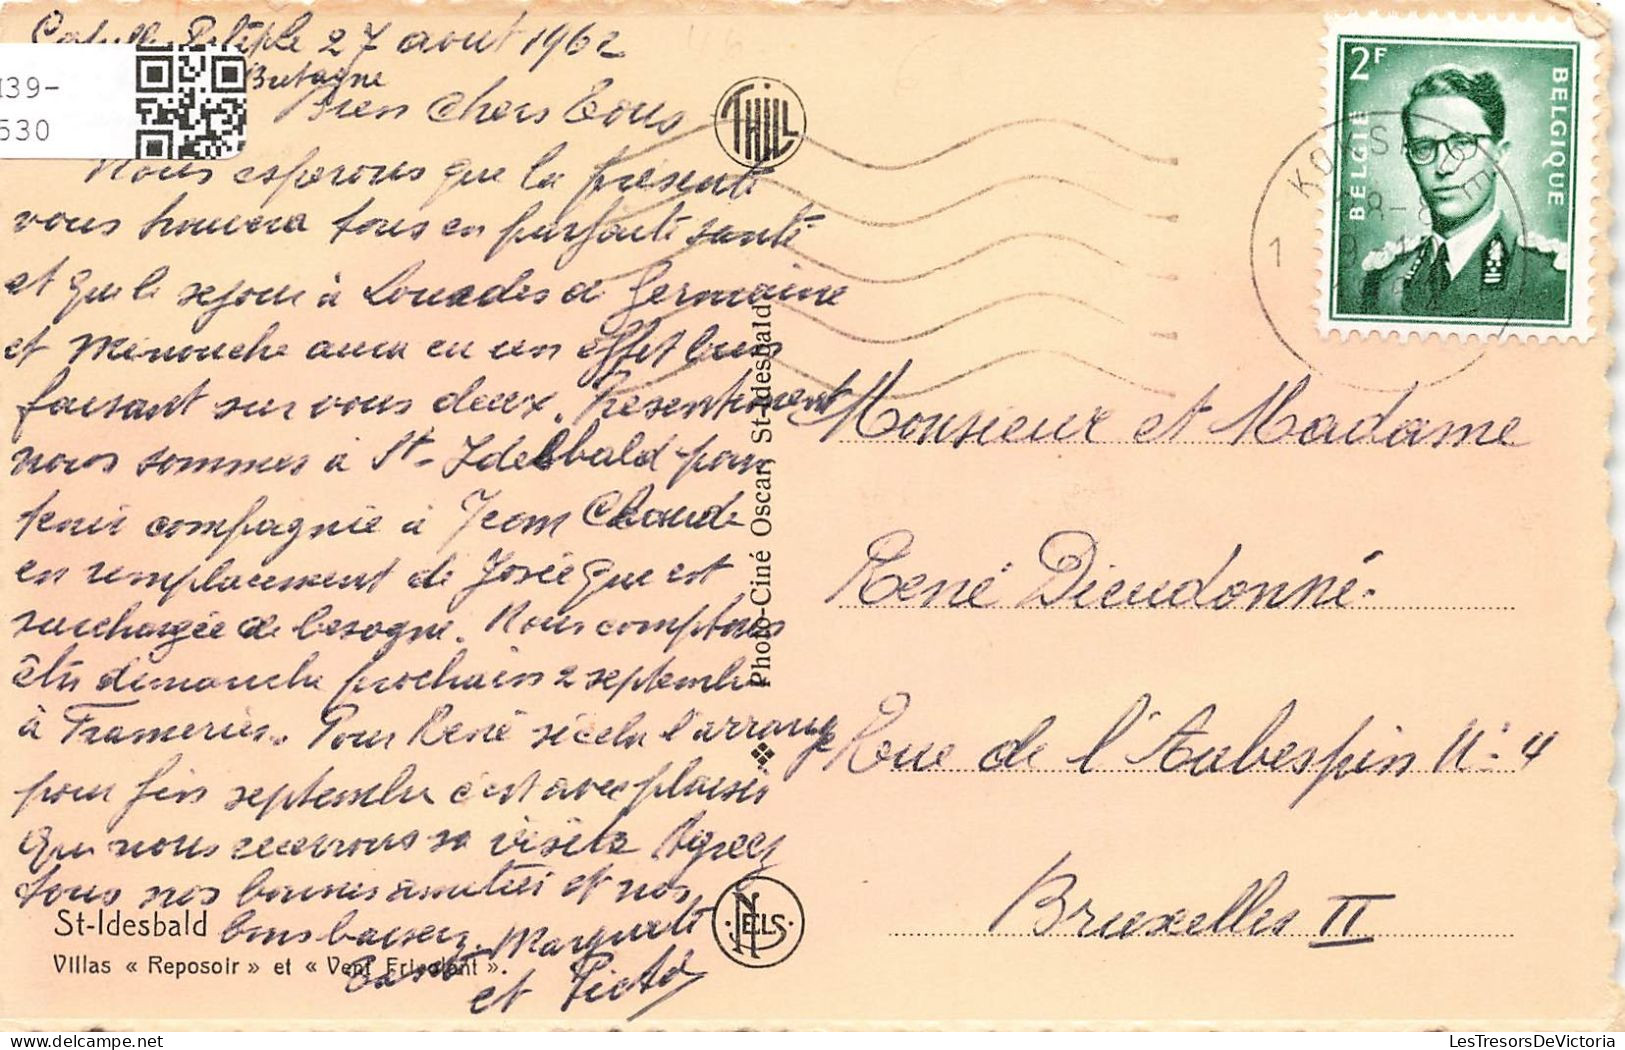 27 aout 1962
Bretagne
I39-
530
Bien chers Tous
Nous esperons que la présente
vous trouvera tous en parfaite santé
et que le sejour à Lourdes de Germaine
et Minouche aura eu un effet bien
faisant sur vous deux. Présentement
nous sommes à St-Idesbald pour
tenir compagnie à Jean Claude
en remplacement de Josée que est
surchargée de besogne. Nous comptons
être dimanche prochain 2 septembre
à Frameries. Pour René si cela l'arrange
pour fin septembre c'est avec plaisir
que nous recevrons sa visite Agreez
tous nos bonnes amitiés et nos
bons baisers. Marguerite
et
St-Idesbald
Villas « Reposoir » et « Vent Friedant ».
THILL
NELS
Photo-Ciné Oscar, St-Idesbald
2F
BELGIE
BELGIQUE
KOKSIJDE
Monsieur et Madame
René Dieudonné.
Rue de l'Aubespin N: 4
Bruxelles II
LesTresorsDeVictoria